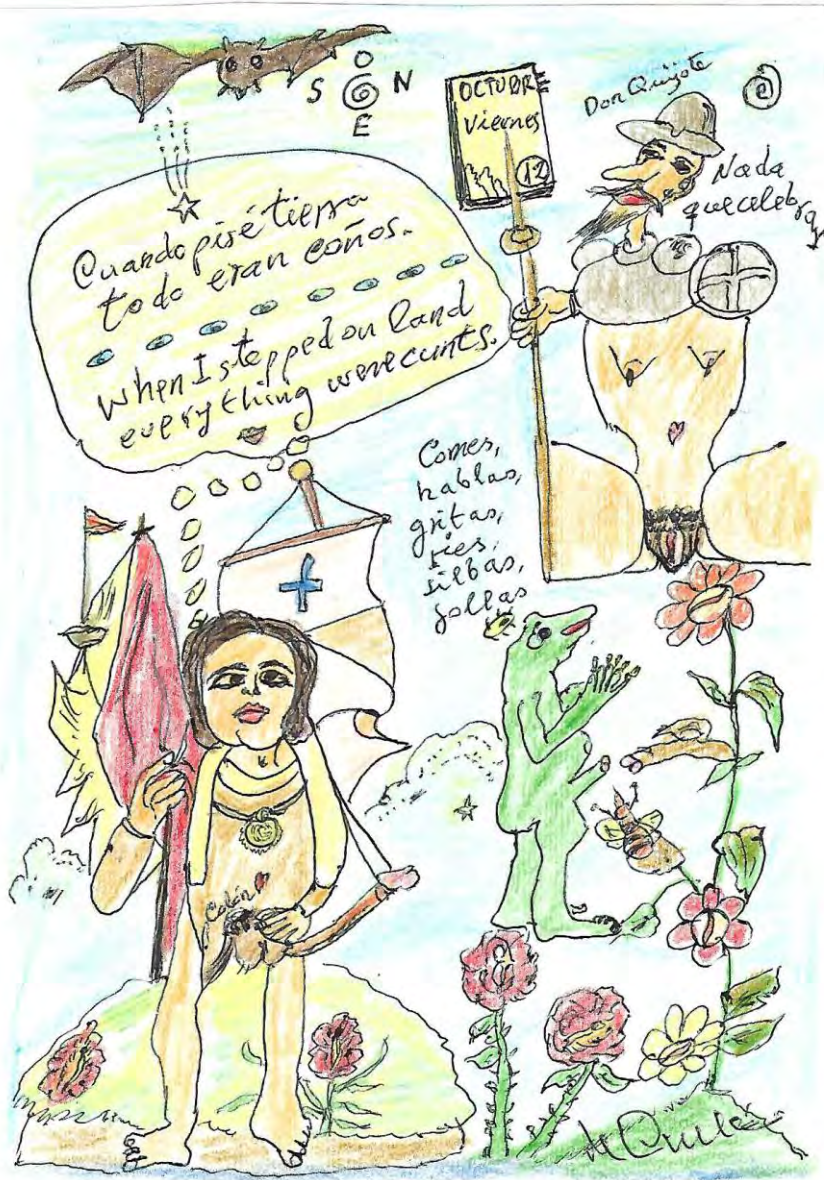 O
S N
E
OCTUBRE
Viernes
12
Don Quijote
@
Nada
que celebrar
Cuando pisé tierra
todo eran coños.
When I stepped on land
everything were cunts.
Comes,
hablas,
gritas,
ries,
silbas,
follas
Colón